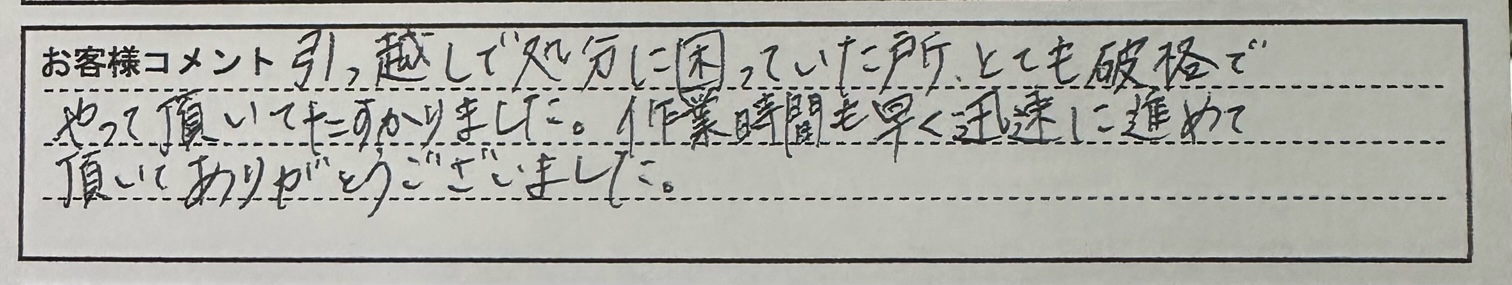 お客様コメント 引っ越しで処分に困っていた所、とても破格で
やって頂いてたすかりました。作業時間も早く迅速に進めて
頂いてありがとうございました。